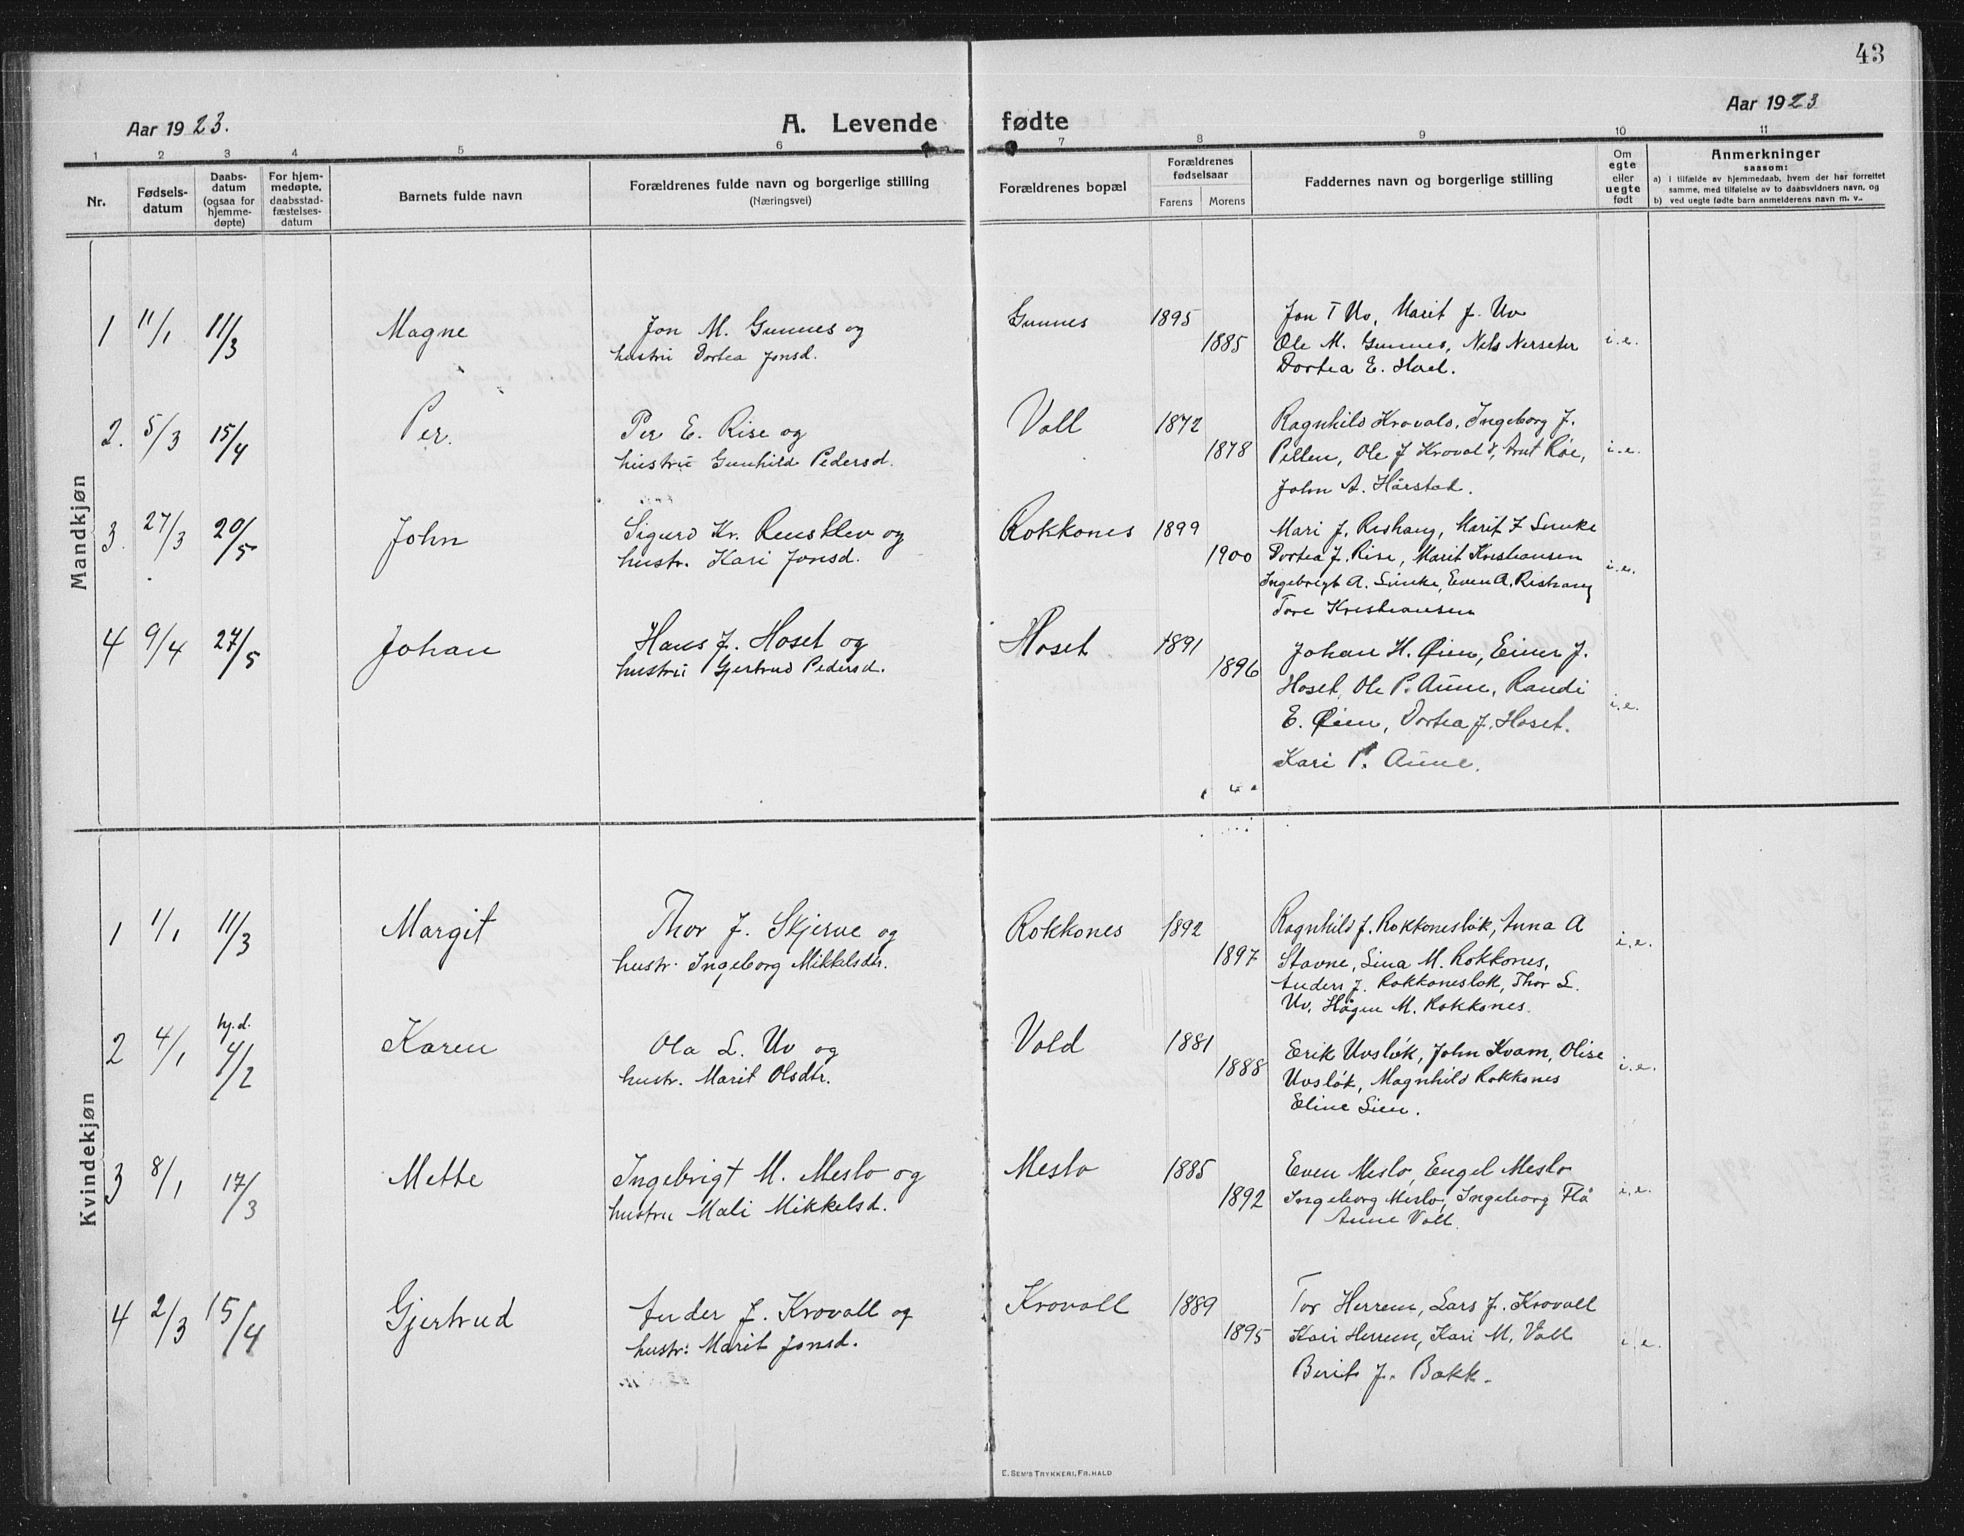 43
Aar 1923.
A. Levende fødte
Aar 1923
1 2 3 4 5 6 7 8 9 10 11
Nr.
Fødsels-
datum
Daabs-
datum
(ogsaa for
hjemme-
døpte)
For hjem-
medøpte,
daabsstad-
fæstelses-
datum
Barnets fulde navn
Forældrenes fulde navn og borgerlige stilling
(Næringsvei)
Forældrenes bopæl
Forældrenes
fødselsaar
Farens Morens
Faddernes navn og borgerlige stilling
Om
egte
eller
uegte
født
Anmerkninger
saasom:
a) i tilfælde av hjemmedaab, hvem der har forrettet
samme, med tilføielse av to daabsvidners navn, og
b) ved uegte fødte barn anmelderens navn m. v.
Mandkjøn
1 11/1 11/3 Magne
Jon M. Gunnes og
hustru Dortea Jonsd.
Gunnes 1895 1885
Jon T Uv, Marit J. Uv
Ole M. Gunnes, Nels Nerseter
Dortea E. Hoel.
i.e.
2. 5/3 15/4 Per.
Per E. Rise og
hustru Gunhild Pedersd.
Voll 1872 1878
Ragnhild Krovald, Ingeborg J.
Pellen, Ole J Krovald, Arnt Röe,
John A. Hårstad.
i.e.
3. 27/3 20/5 John
Sigurd Kr. Rensklev og
hustr. Kari Jonsd.
Rokkones 1899 1900
Mari J. Rishaug, Marit J Simke
Dortea J. Rise, Marit Kristiansen
Ingebrigt A. Simke, Even A. Rishaug
Tore Kristiansen
i.e.
4 9/4 27/5 Johan
Hans J. Hoset og
hustru Gjertrud Pedersd.
Hoset 1891 1896
Johan H. Øien, Einar J.
Hoset, Ole P. Aune, Randi
E. Øien, Dortea J. Hoset.
Kari P. Aune.
i.e.
Kvindekjøn
1 1/1 11/3 Margit
Thor J. Skjerve og
hustr. Ingeborg Mikkelsdtr.
Rokkones 1892 1897
Ragnhild J. Rokkonesløk, Anna A
Stavne, Lina M. Rokkones,
Anders J. Rokkonesløk, Thor L.
Uv, Hågen M. Rokkones.
i.e.
2 4/1 hj.d. 4/2 Karen
Ola L. Uv og
hustr. Marit Olsdtr.
Vold 1881 1888
Erik Uvsløk, John Kvam, Olise
Uvsløk, Magnhild Rokkones
Eline Lien.
i.e.
3 8/1 17/3 Mette
Ingebrigt M. Meslo og
hustru Mali Mikkelsd.
Meslo 1885 1892
Even Meslo, Engel Meslo
Ingeborg Meslo, Ingeborg Flå
Anne Voll.
i.e.
4 2/3 15/4 Gjertrud
Ander J. Krovoll og
hustr: Marit Jonsd.
Krovoll 1889 1895
Tor Herrem, Lars J. Krovoll
Kari Herrem, Kari M. Voll
Berit J. Bakk.
i.e.
E. SEM'S TRYKKERI, FR. HALD